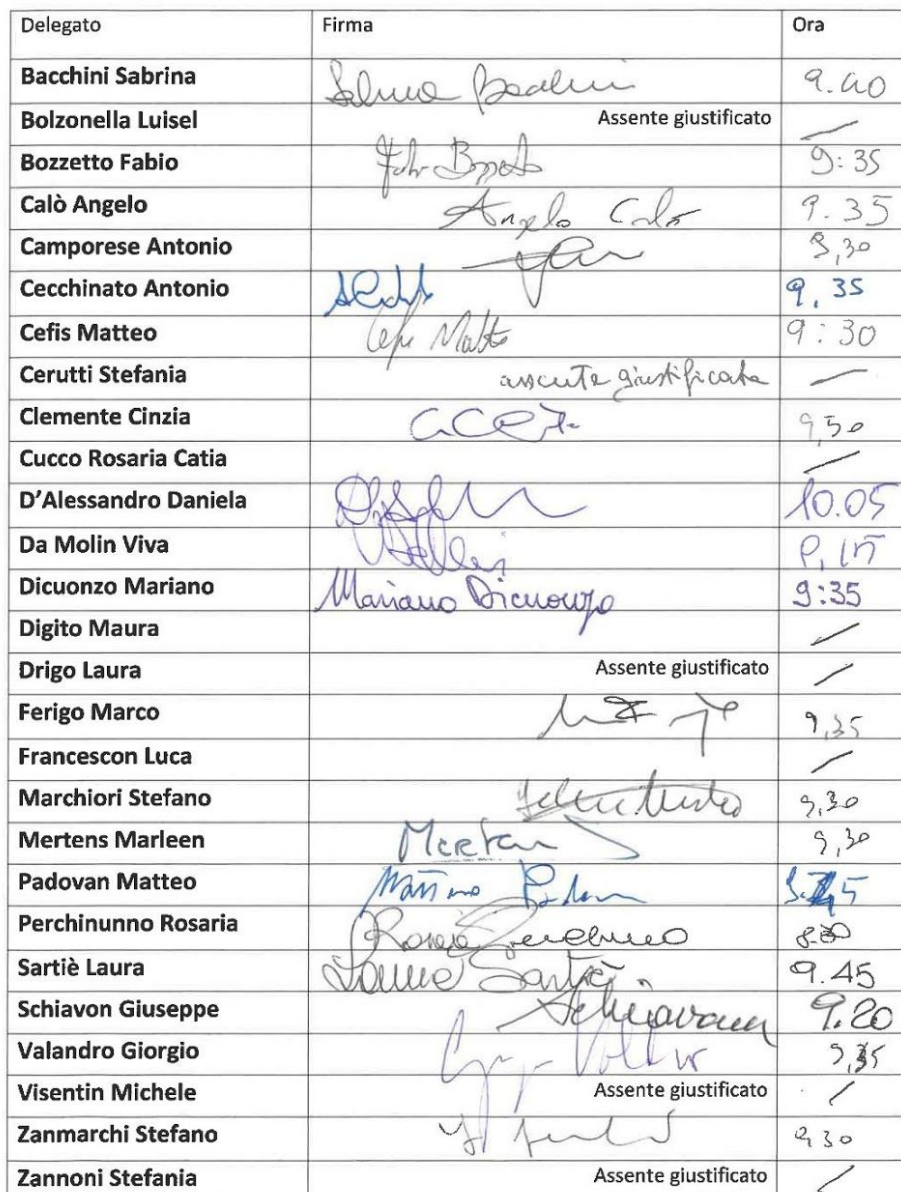 Delegato Firma Ora
Bacchini Sabrina 9.40
Bolzonella Luisel Assente giustificato
Bozzetto Fabio 9:35
Calò Angelo Angelo Calò 9.35
Camporese Antonio 9,30
Cecchinato Antonio 9.35
Cefis Matteo 9:30
Cerutti Stefania assente giustificata
Clemente Cinzia 9,50
Cucco Rosaria Catia
D'Alessandro Daniela 10.05
Da Molin Viva
Dicuonzo Mariano Mariano Dicuonzo 9:35
Digito Maura
Drigo Laura Assente giustificato
Ferigo Marco 9,35
Francescon Luca
Marchiori Stefano 9,30
Mertens Marleen 9,30
Padovan Matteo
Perchinunno Rosaria
Sartiè Laura Laura Sartiè 9.45
Schiavon Giuseppe 9.20
Valandro Giorgio
Visentin Michele Assente giustificato
Zanmarchi Stefano 9 30
Zannoni Stefania Assente giustificato